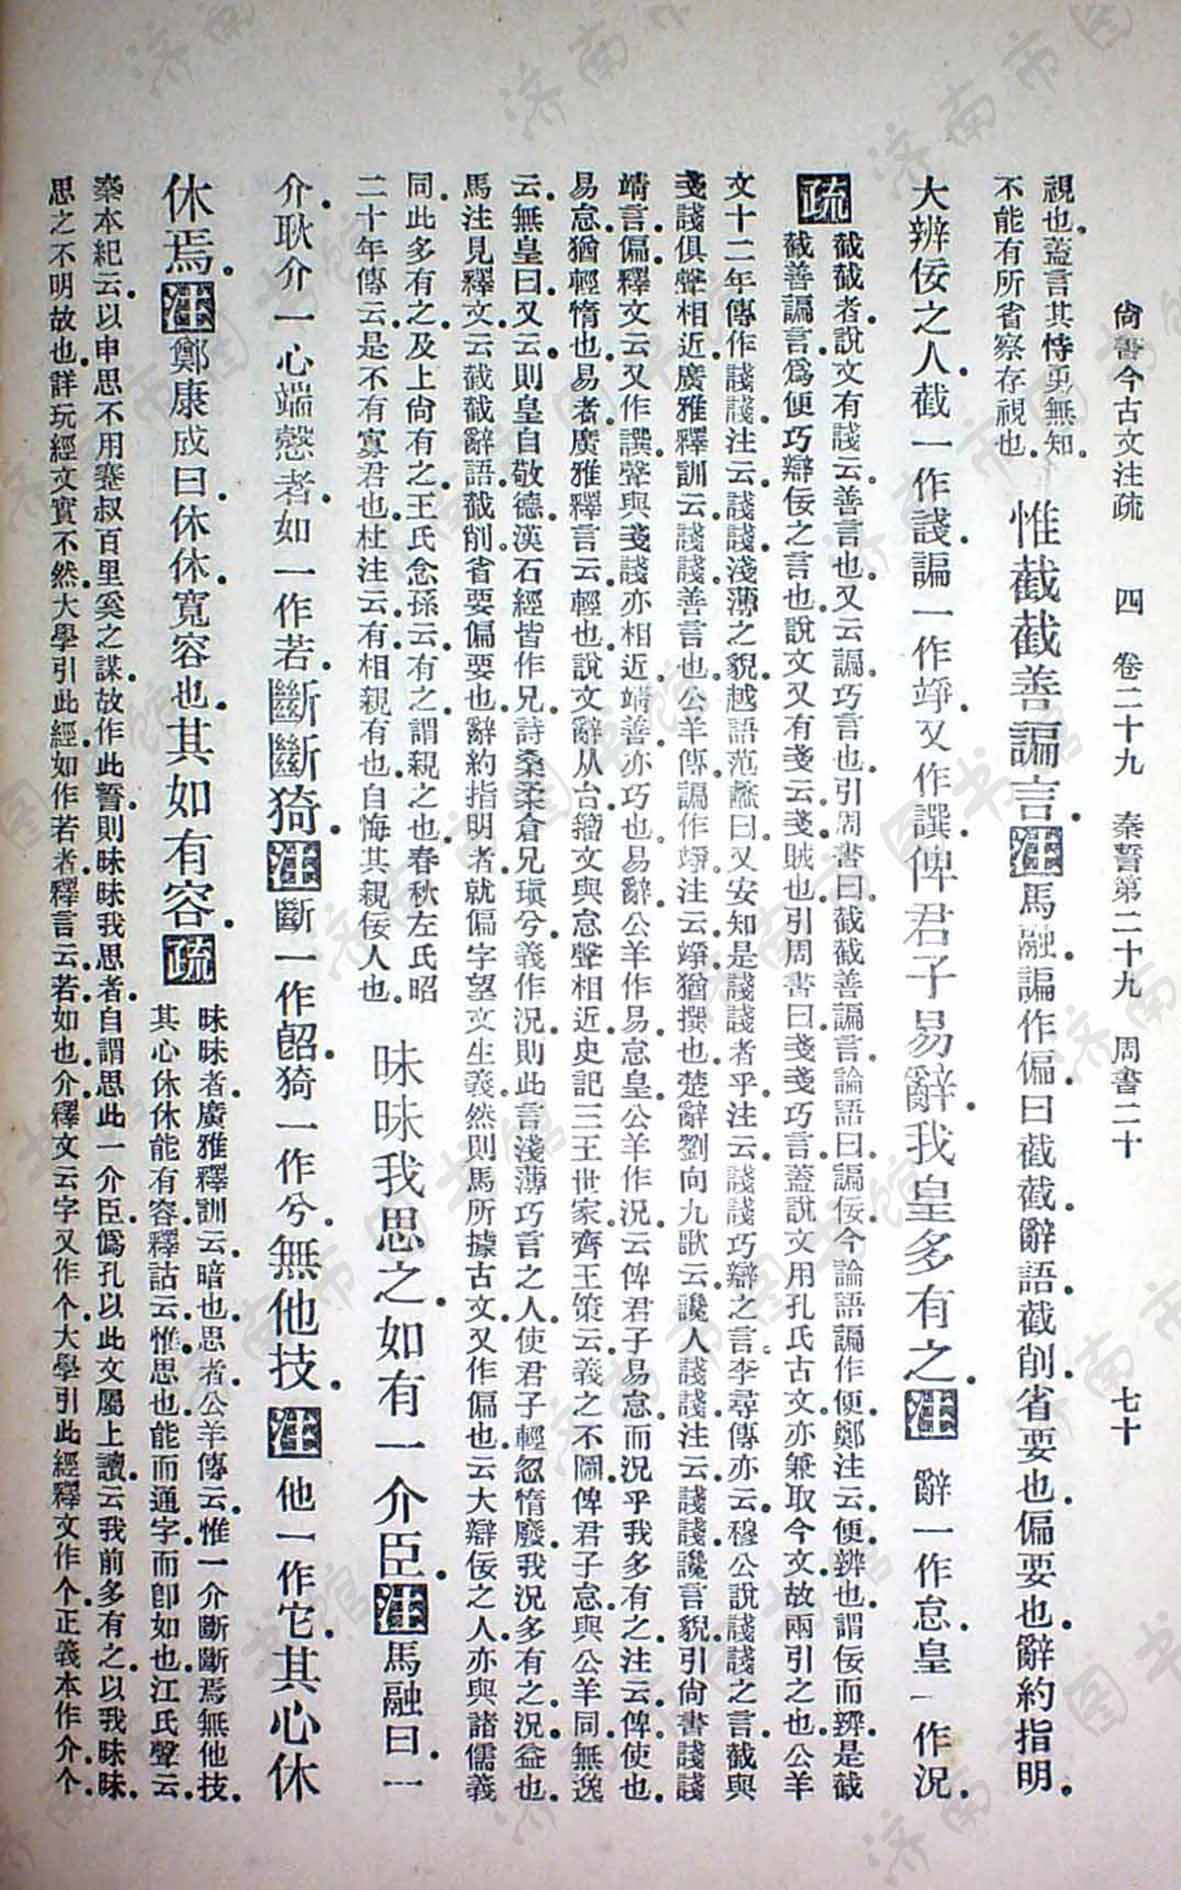 尙書今古文注疏　四　卷二十九　秦誓第二十九　周書二十　七十
視也蓋言其恃勇無知
不能有所省察存視也
惟截截善諞言注馬融諞作偏曰截截辭語截削省要也偏要也辭約指明
大辨佞之人截一作諓諞一作竫又作譔俾君子易辭我皇多有之注辭一作怠皇一作況
疏
截截者說文有諓云善言也又云諞巧言也引周書曰截截善諞言論語曰諞佞今論語諞作便鄭注云便辨也謂佞而辨是截
截善諞言爲便巧辯佞之言也說文又有戔云戔賊也引周書曰戔戔巧言蓋說文用孔氏古文亦兼取今文故兩引之也公羊
文十二年傳作諓諓注云諓諓淺薄之貌越語范蠡曰又安知是諓諓者乎注云諓諓巧辯之言李尋傳亦云穆公說諓諓之言截與
戔諓俱聲相近廣雅釋訓云諓諓善言也公羊傳諞作竫注云竫猶撰也楚辭劉向九歌云讒人諓諓注云諓諓讒言貌引尙書諓諓
靖言偏釋文云又作譔聲與戔諓亦相近靖善亦巧也易辭公羊作易怠皇公羊作況云俾君子易怠而況乎我多有之注云俾使也
易怠猶輕惰也易者廣雅釋言云輕也說文辭从台籀文與怠聲相近史記三王世家齊王策云義之不圖俾君子怠與公羊同無逸
云無皇曰又云則皇自敬德漢石經皆作兄詩桑柔倉兄瑱兮義作況則此言淺薄巧言之人使君子輕忽惰廢我況多有之況益也
馬注見釋文云截截辭語截削省要偏要也辭約指明者就偏字望文生義然則馬所據古文又作偏也云大辯佞之人亦與諸儒義
同此多有之及上尙有之王氏念孫云有之謂親之也春秋左氏昭
二十年傳云是不有寡君也杜注云有相親有也自悔其親佞人也
昧昧我思之如有一介臣注馬融曰一
介耿介一心端愨者如一作若斷斷猗注斷一作㫁猗一作兮無他技注他一作它其心休
休焉注鄭康成曰休休寬容也其如有容疏
昧昧者廣雅釋訓云暗也思者公羊傳云惟一介斷斷焉無他技
其心休休能有容釋詁云惟思也能而通字而卽如也江氏聲云
秦本紀云以申思不用蹇叔百里奚之謀故作此誓則昧昧我思者自謂思此一介臣僞孔以此文屬上讀云我前多有之以我昧昧
思之不明故也詳玩經文實不然大學引此經如作若者釋言云若如也介釋文云字又作个大學引此經釋文作个正義本作介个